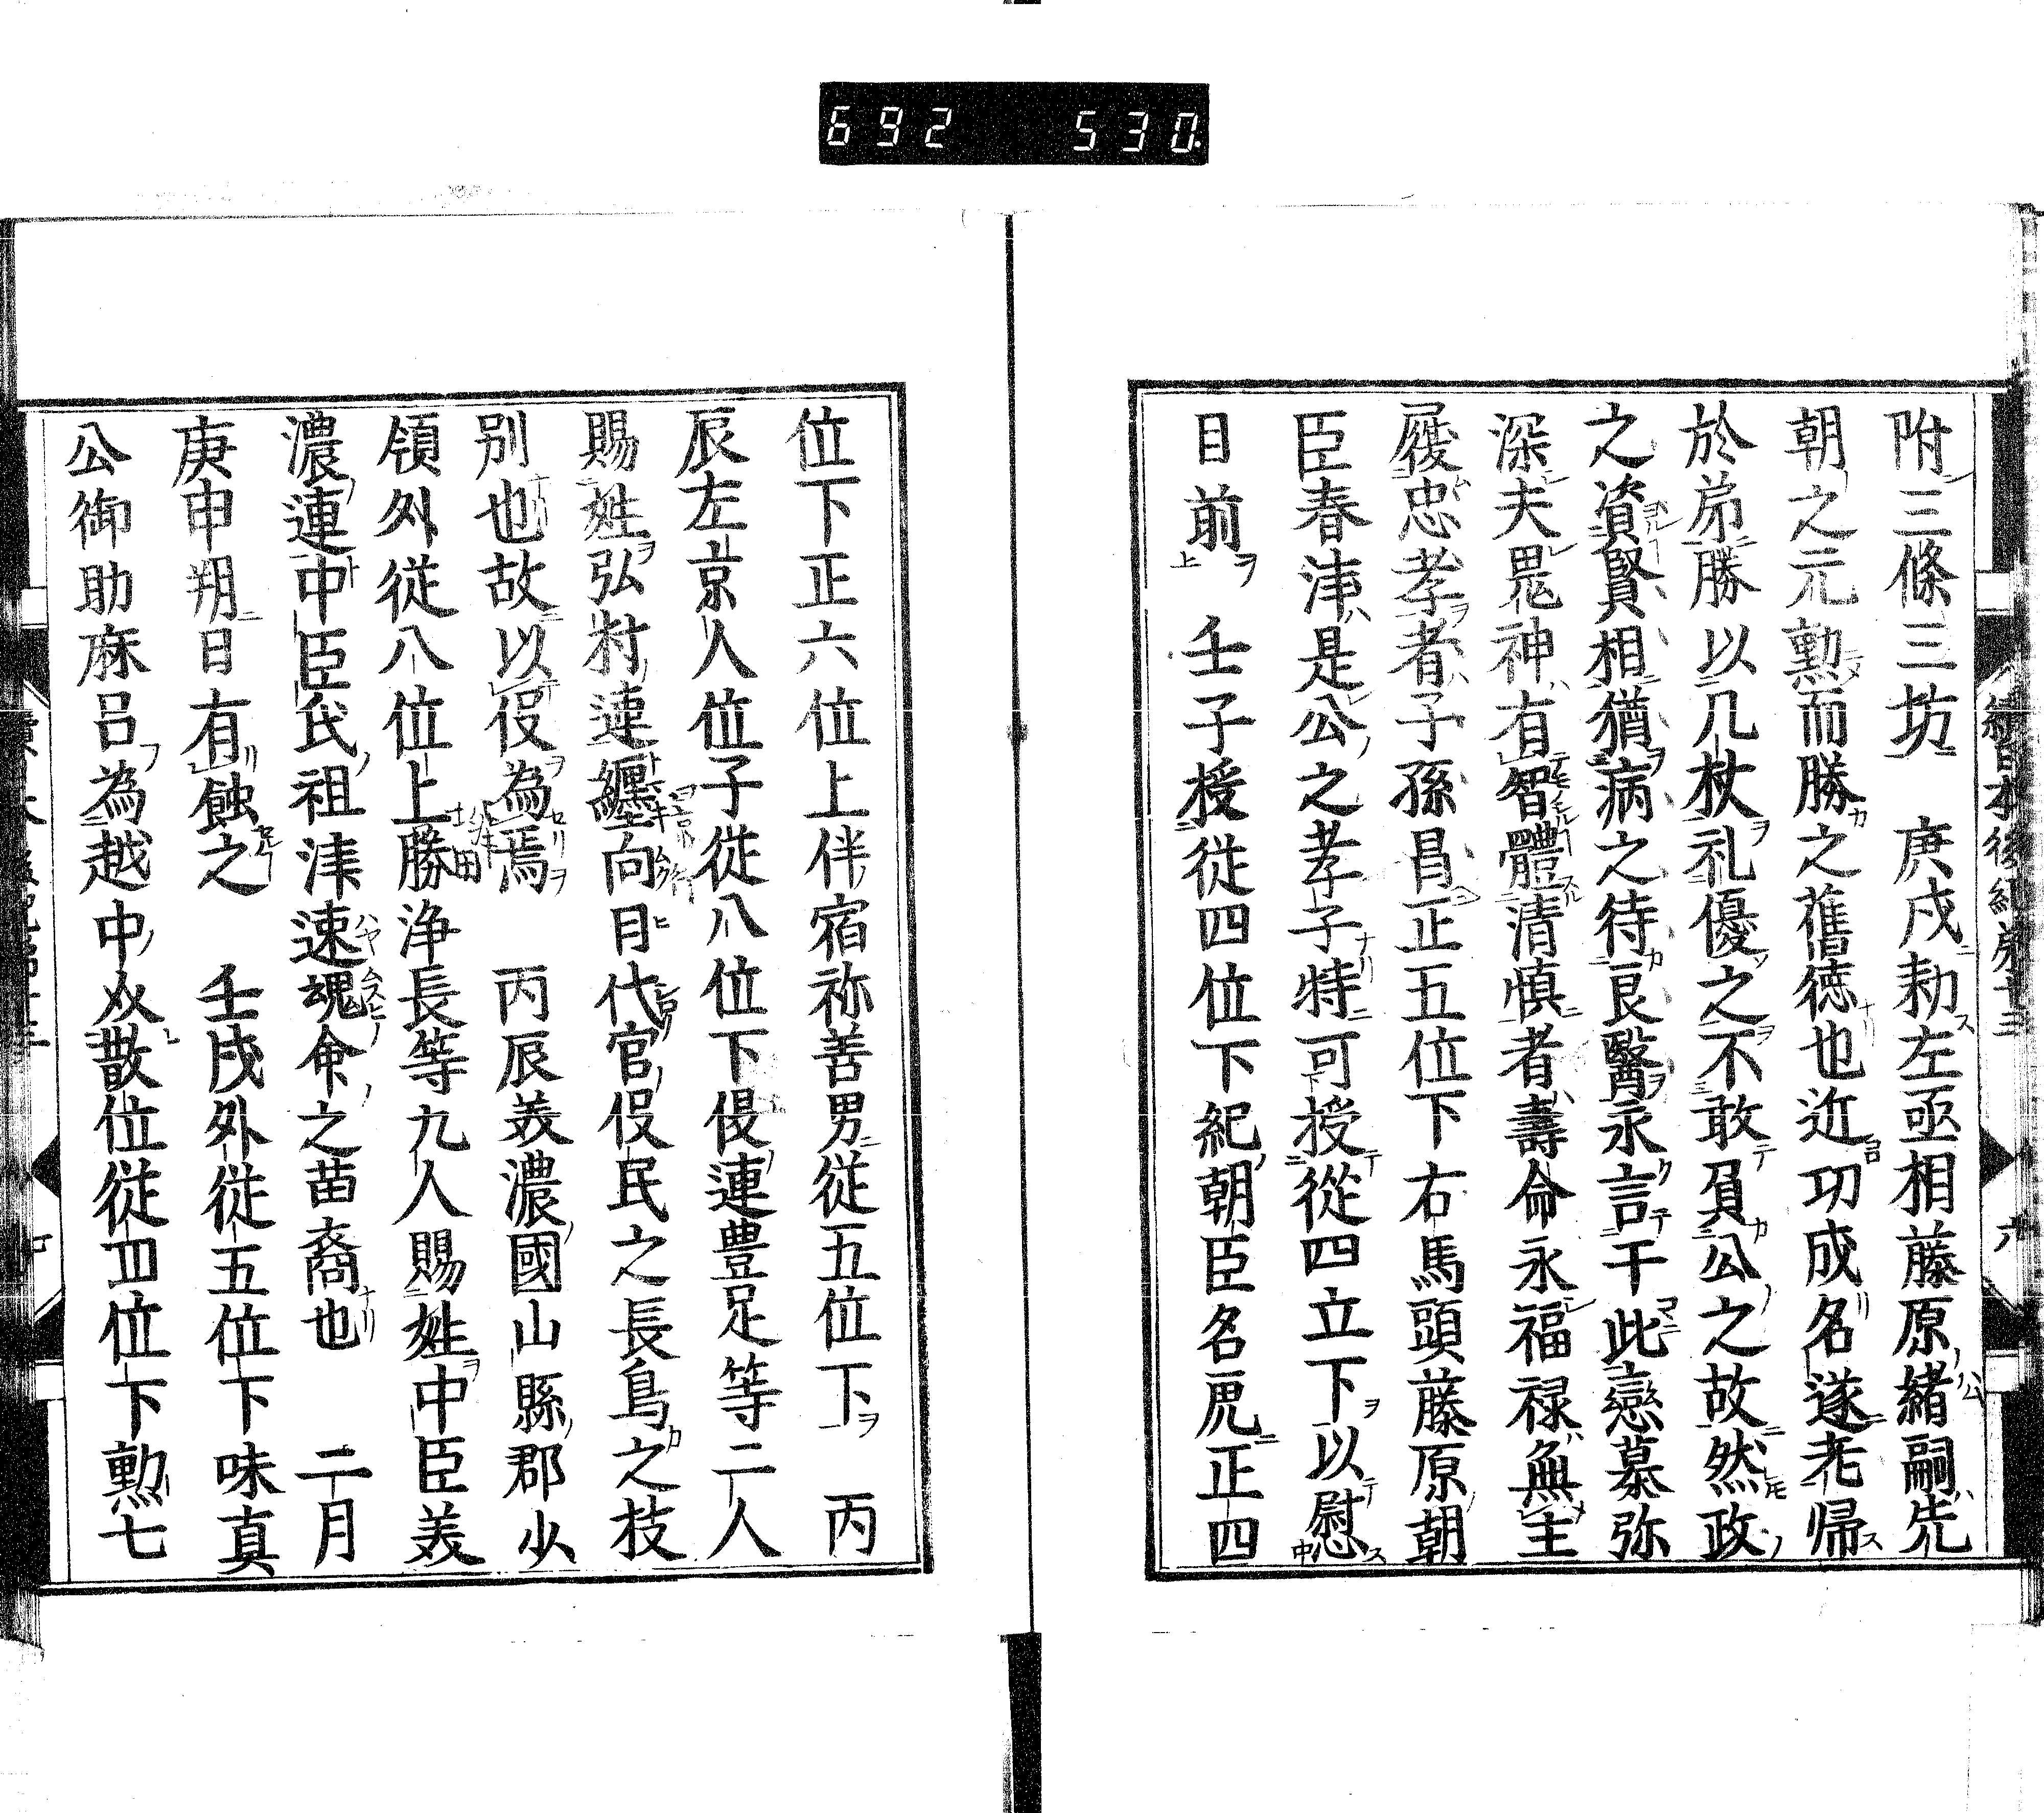 692 530
附三條三坊 庚戌勅左亟相藤原緒嗣先
朝之元勲而勝之舊徳也近功成名遂老帰
於弟勝以几杖礼優之不敢負公之故然政
之資賢相猶病之待良醫永言干此戀慕弥
深夫思神有智體清慎者壽命永福禄無主
履忠孝者子孫昌正五位下右馬頭藤原朝
臣春津是公之孝子特可授從四立下以慰
目前 壬子授従四位下紀朝臣名虎正四
位下正六位上伴宿祢善男従五位下 丙
辰左京人位子従八位下侵連豊足等二人
賜姓弘村連纒向目代官侵民之長鳥之枝
別也故以侵為焉 丙辰美濃國山縣郡少
領外従八位上勝浄長等九人賜姓中臣美
濃連中臣氏祖津速魂命之苗裔也 二月
庚申朔日有蝕之 壬戌外従五位下味真
公御助麻呂為越中介散位従四位下勲七
續日本後紀第十三 六